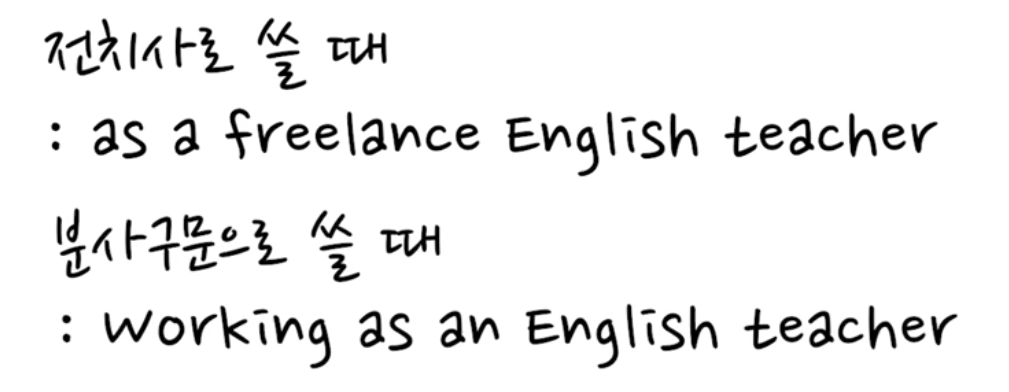 전치사로 쓸 때
: as a freelance English teacher
분사구문으로 쓸 때
: working as an English teacher